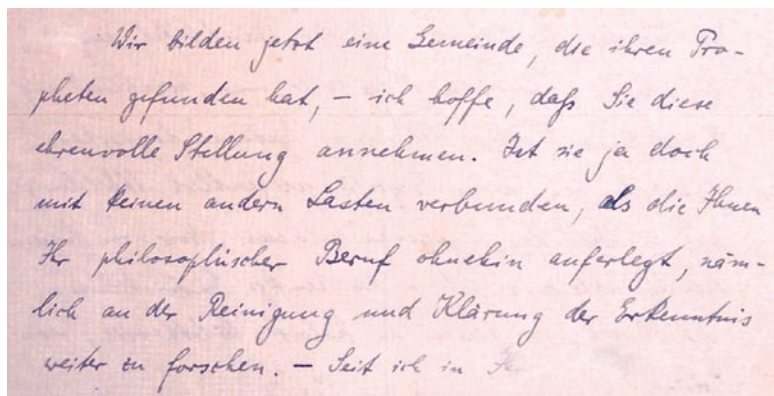 Wir bilden jetzt eine Gemeinde, die ihren Pro-
pheten gefunden hat, – ich hoffe, daß Sie diese
ehrenvolle Stellung annehmen. Ist sie ja doch
mit keinen andern Lasten verbunden, als die Ihnen
Ihr philosophischer Beruf ohnehin auferlegt, näm-
lich an der Reinigung und Klärung der Erkenntnis
weiter zu forschen. – Seit ich in